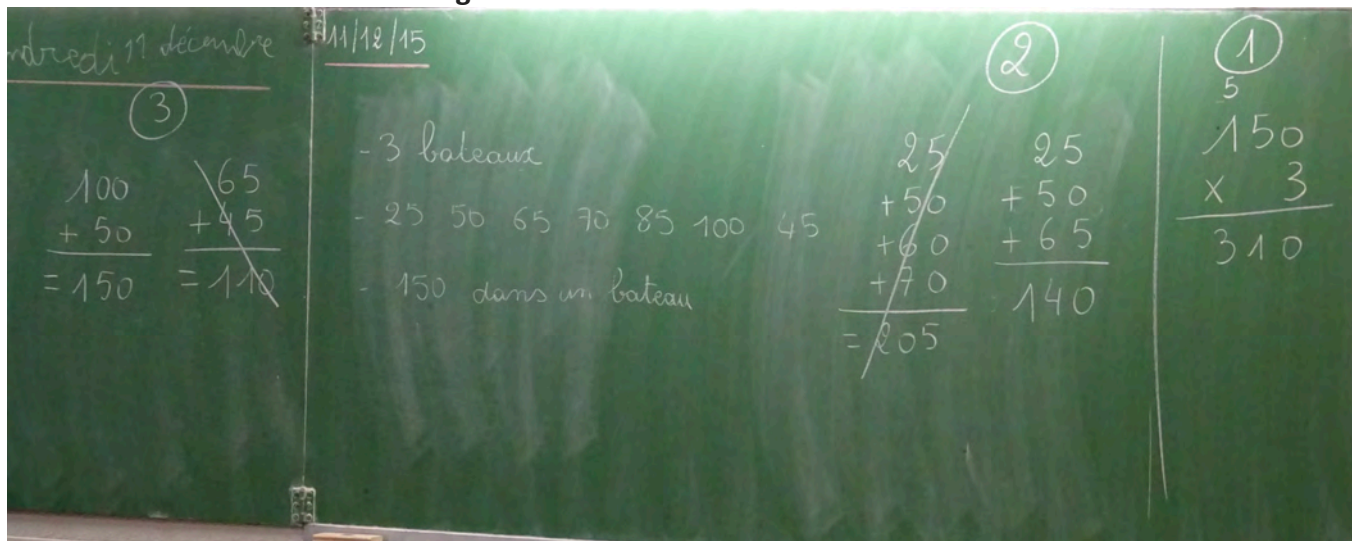 ndredi 11 décembre
3
100
+ 50
= 150
65
+ 45
= 110
11/12/15
- 3 bateaux
- 25 50 65 70 85 100 45
- 150 dans un bateau
2
25
+ 50
+ 60
+ 70
= 205
25
+ 50
+ 65
140
1
5
150
x 3
310